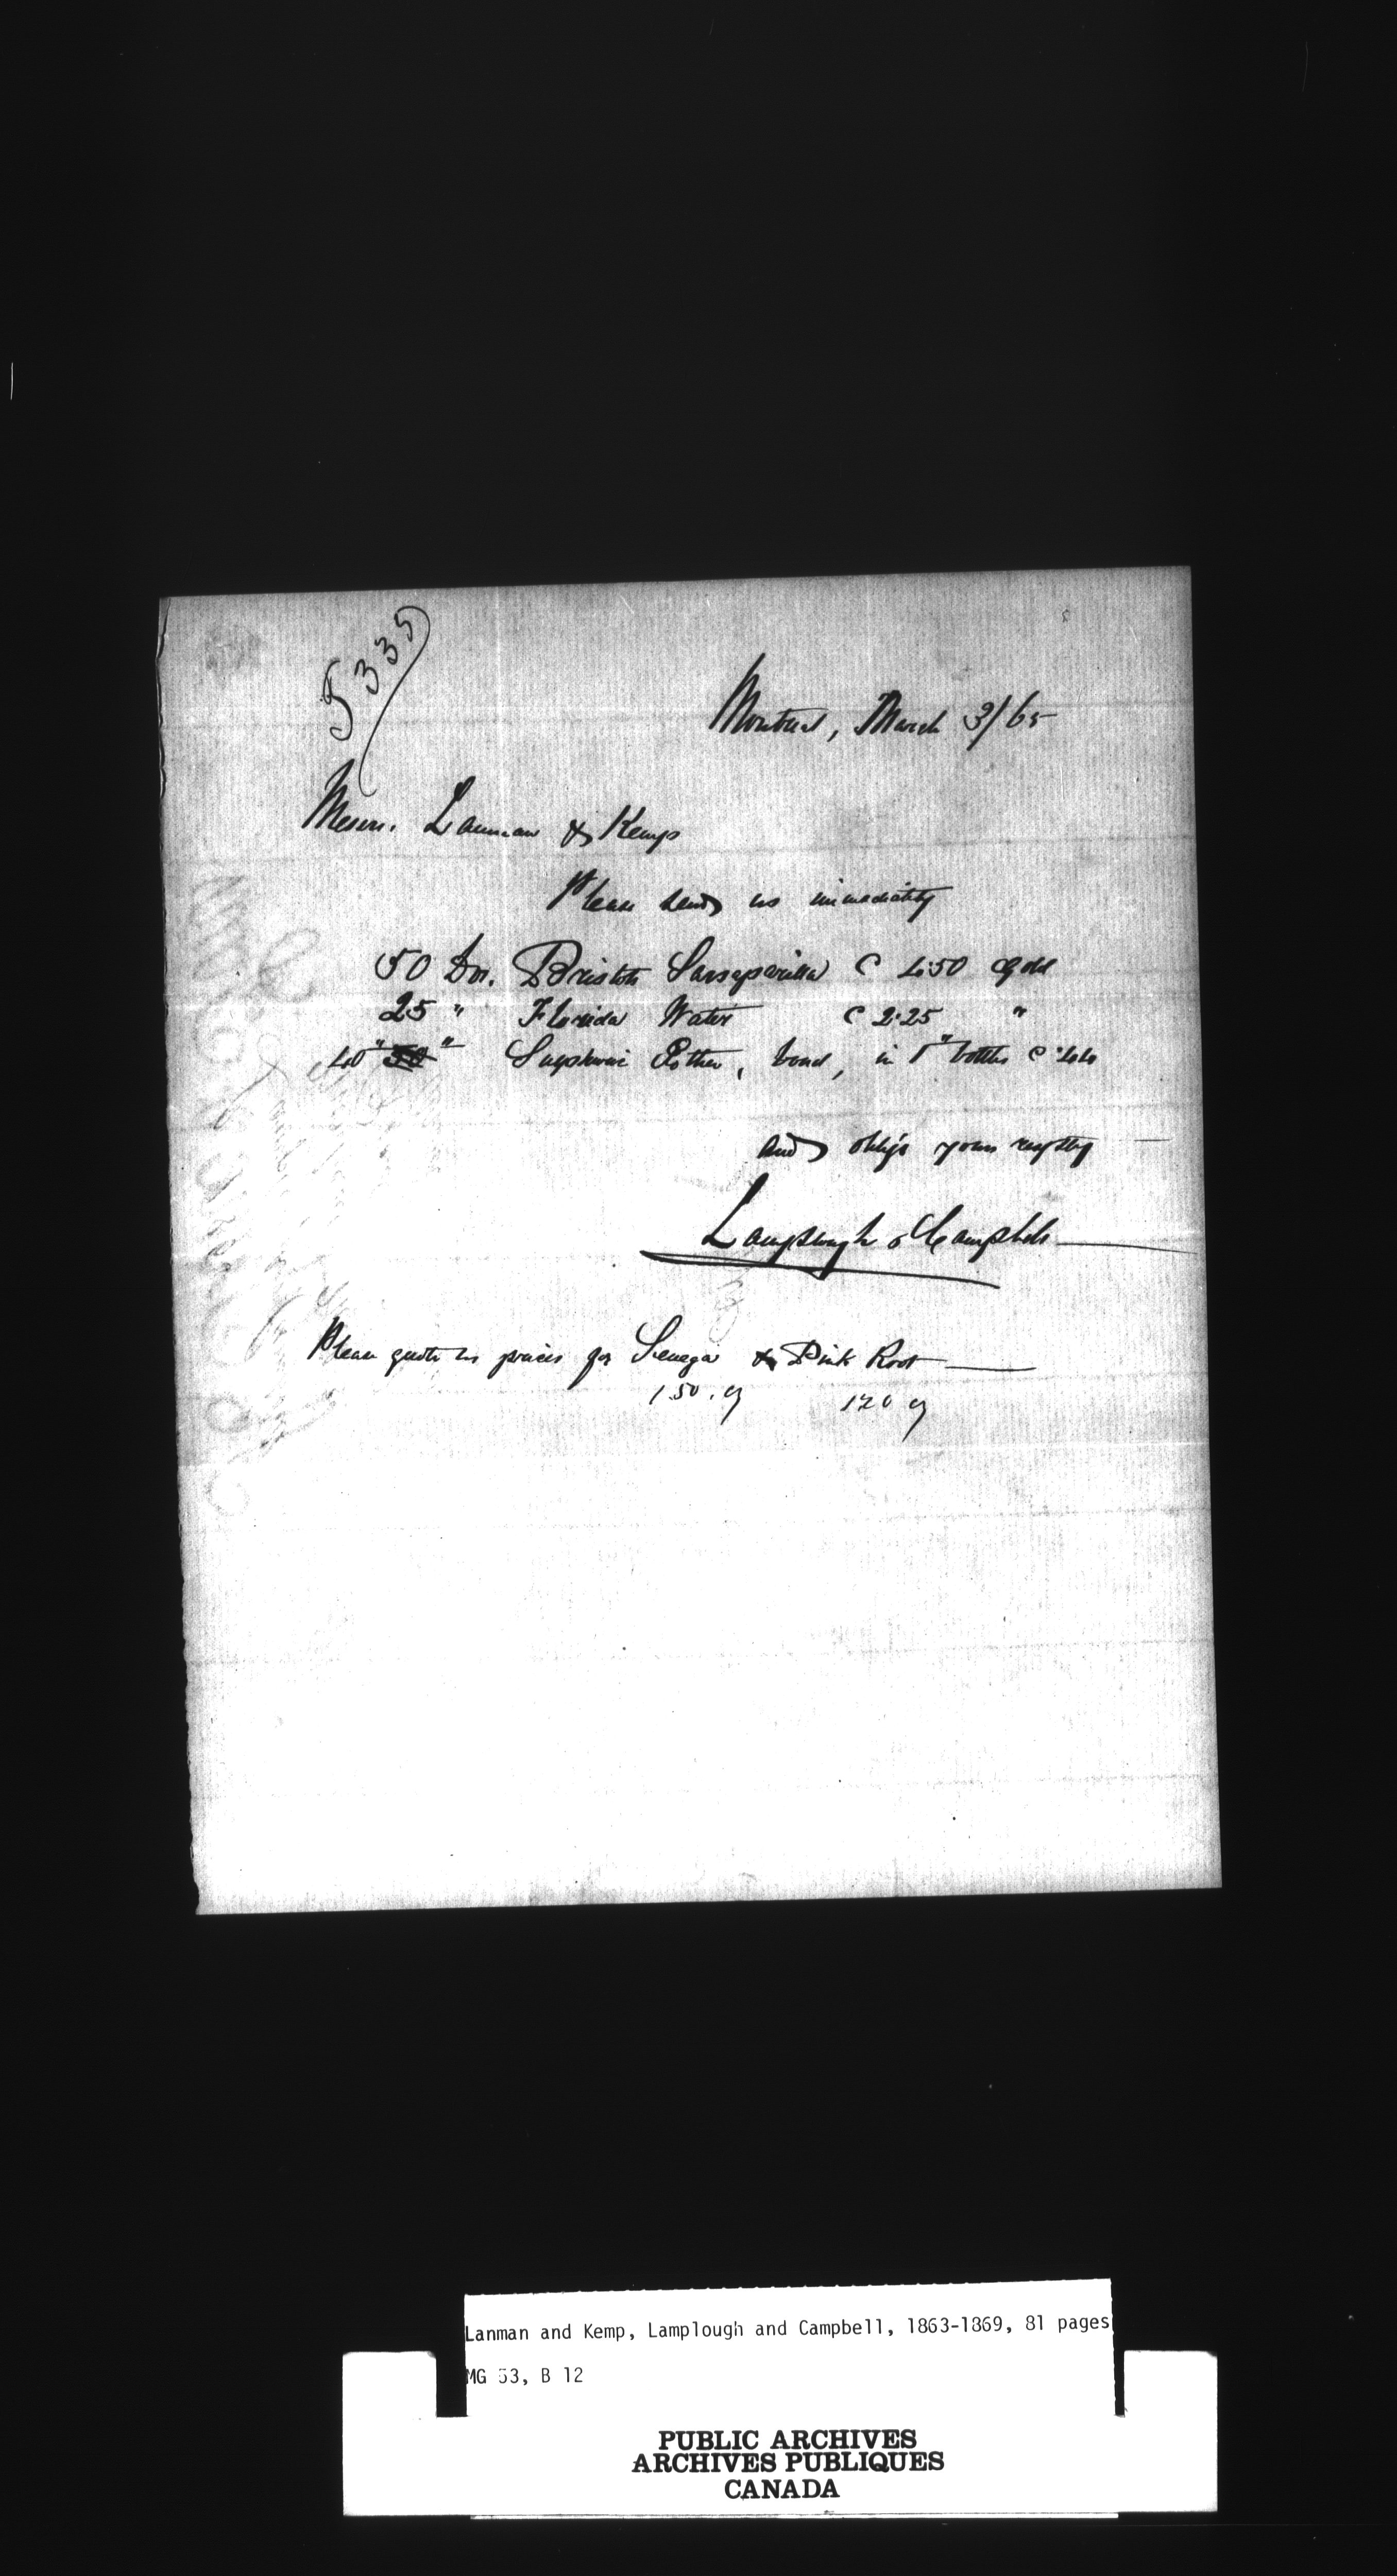 5335
Montreal, March 3/65
Messrs. Lanman & Kemp
Please send us immediately
50 Doz. Bristols Sarsaparilla @ 4.50 Gold
25 " Florida Water @ 2.25 "
40 " 50 " Sulphuric Ether, bond, in 1" bottles @ .44
and oblige yours respctly
Lamplough & Campbell
Please quote us prices for Senega & Pink Root
150. 120
Lanman and Kemp, Lamplough and Campbell, 1863-1869, 81 pages
MG 53, B 12
PUBLIC ARCHIVES
ARCHIVES PUBLIQUES
CANADA